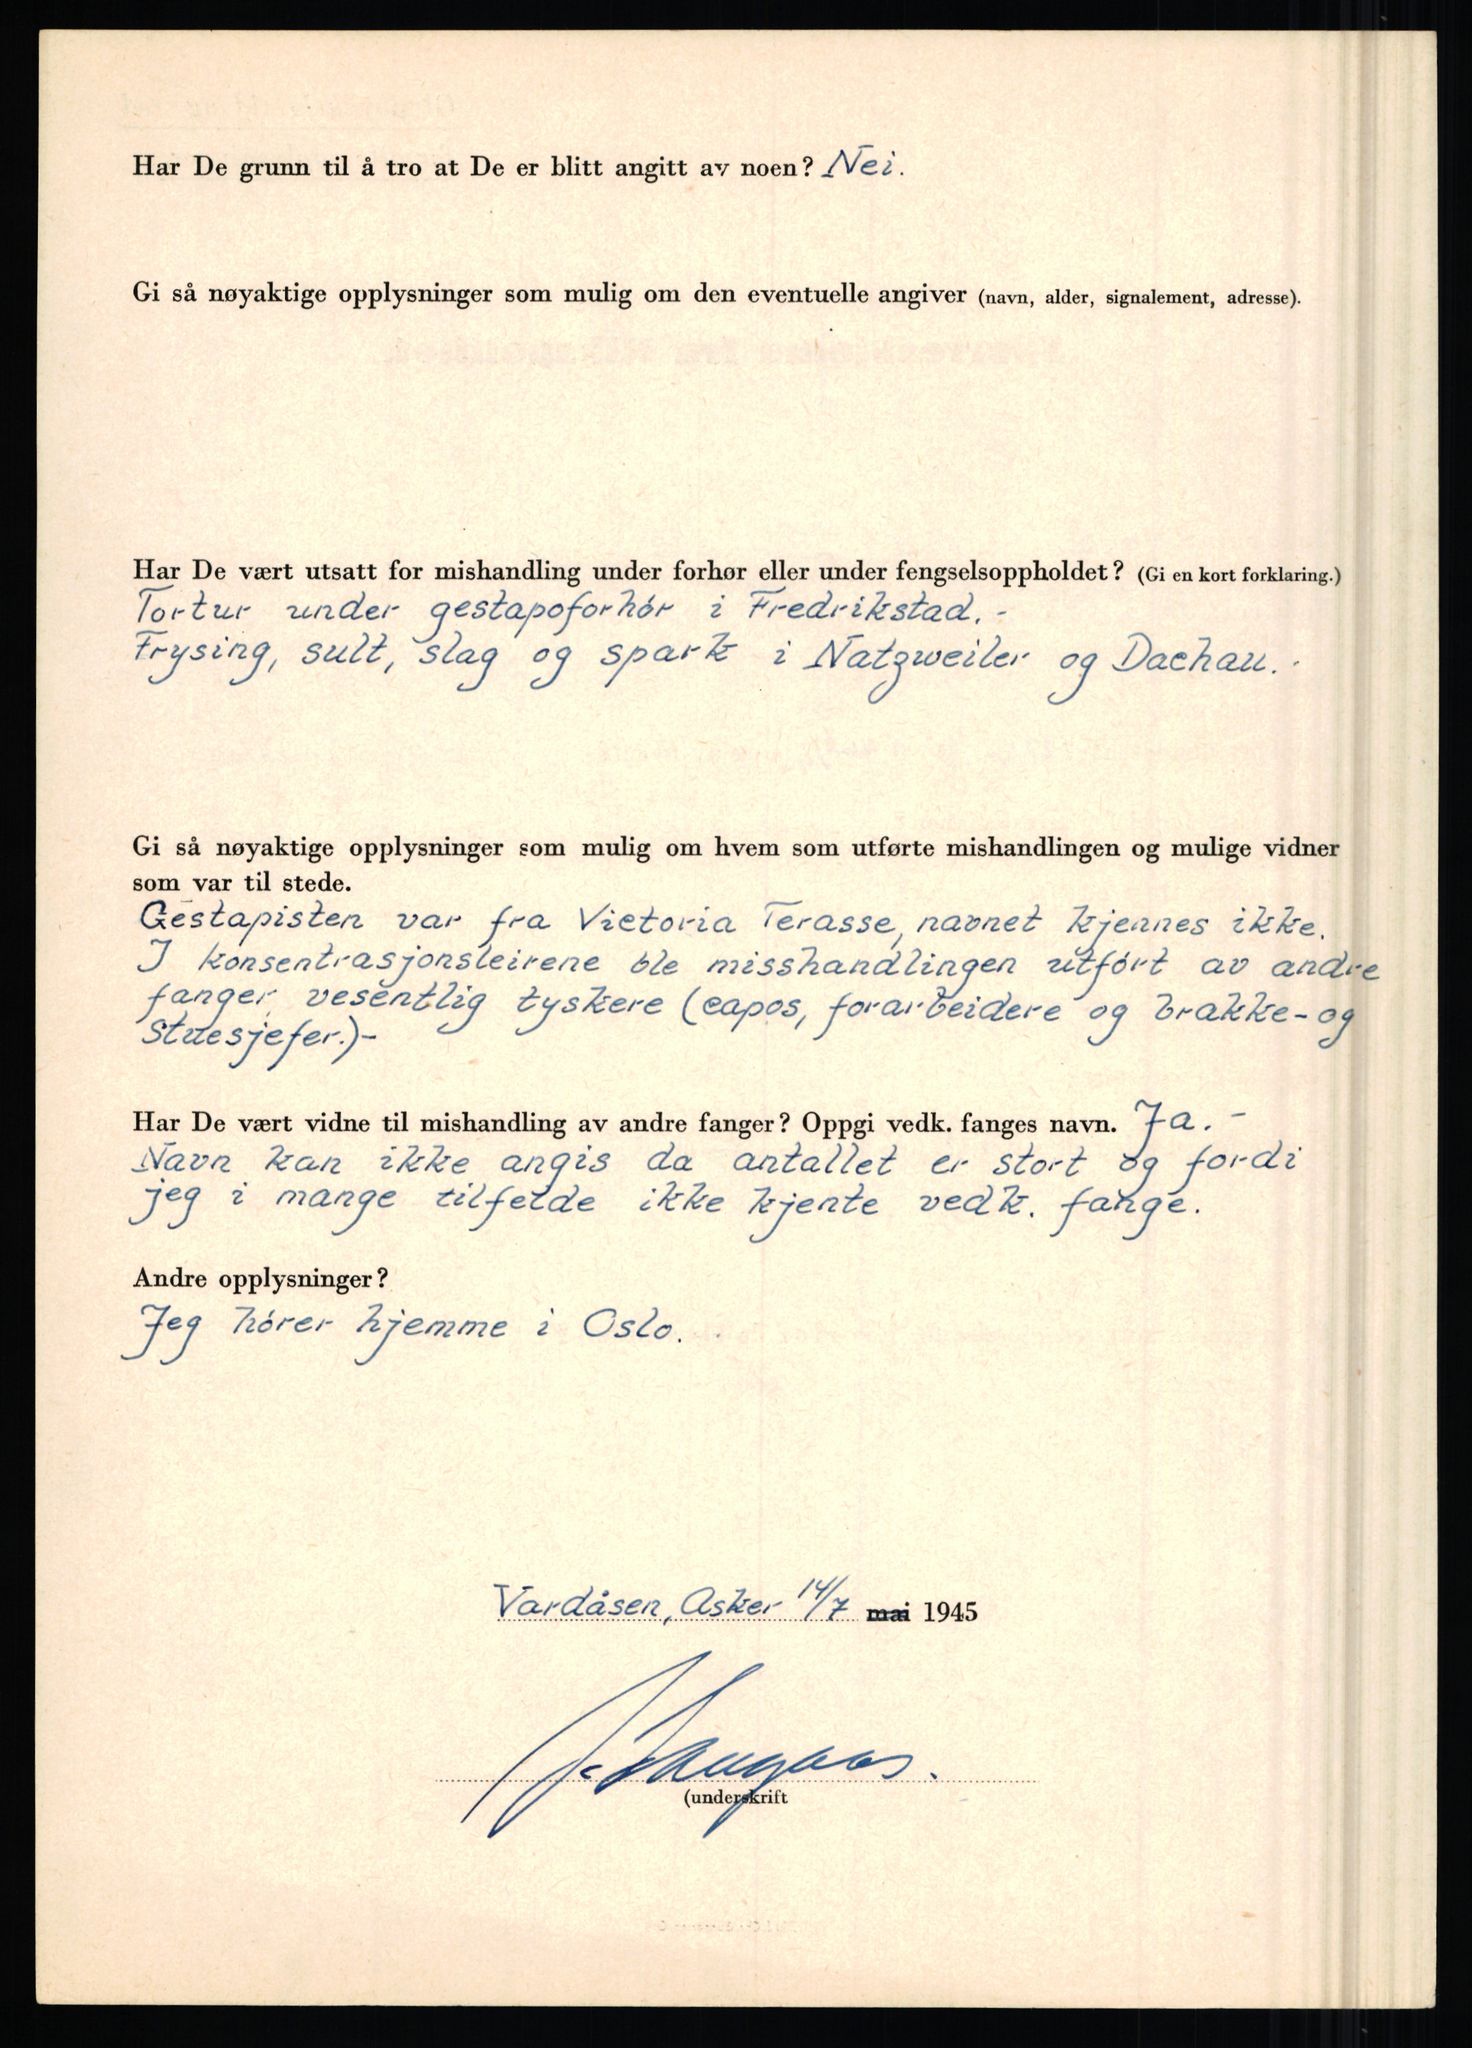 Har De grunn til å tro at De er blitt angitt av noen? Nei.
Gi så nøyaktige opplysninger som mulig om den eventuelle angiver (navn, alder, signalement, adresse).
Har De vært utsatt for mishandling under forhør eller under fengselsoppholdet? (Gi en kort forklaring.)
Tortur under gestapoforhór i Fredrikstad.-
Frysing, sult, slag og spark i Natzweiler og Dachau.-
Gi så nøyaktige opplysninger som mulig om hvem som utførte mishandlingen og mulige vidner
som var til stede.
Gestapisten var fra Victoria Terasse, navnet kjennes ikke.
I konsentrasjonsleirene ble misshandlingen utfórt av andre
fanger, vesentlig tyskere (capos, forarbeidere og brakke- og
stuesjefer.)-
Har De vært vidne til mishandling av andre fanger? Oppgi vedk. fanges navn. Ja.-
Navn kan ikke angis da antallet er stort og fordi
jeg i mange tilfelde ikke kjente vedk. fange.
Andre opplysninger?
Jeg hórer hjemme i Oslo.
Vardåsen, Asker 14/7 mai 1945
(underskrift